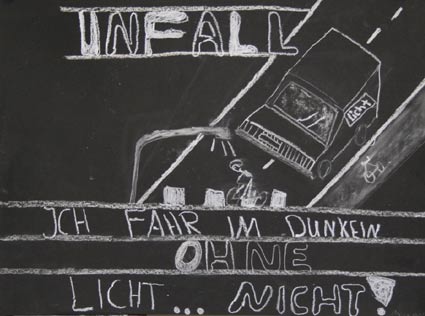 UNFALL
Licht
ICH FAHR IM DUNKELN
OHNE
LICHT... NICHT!